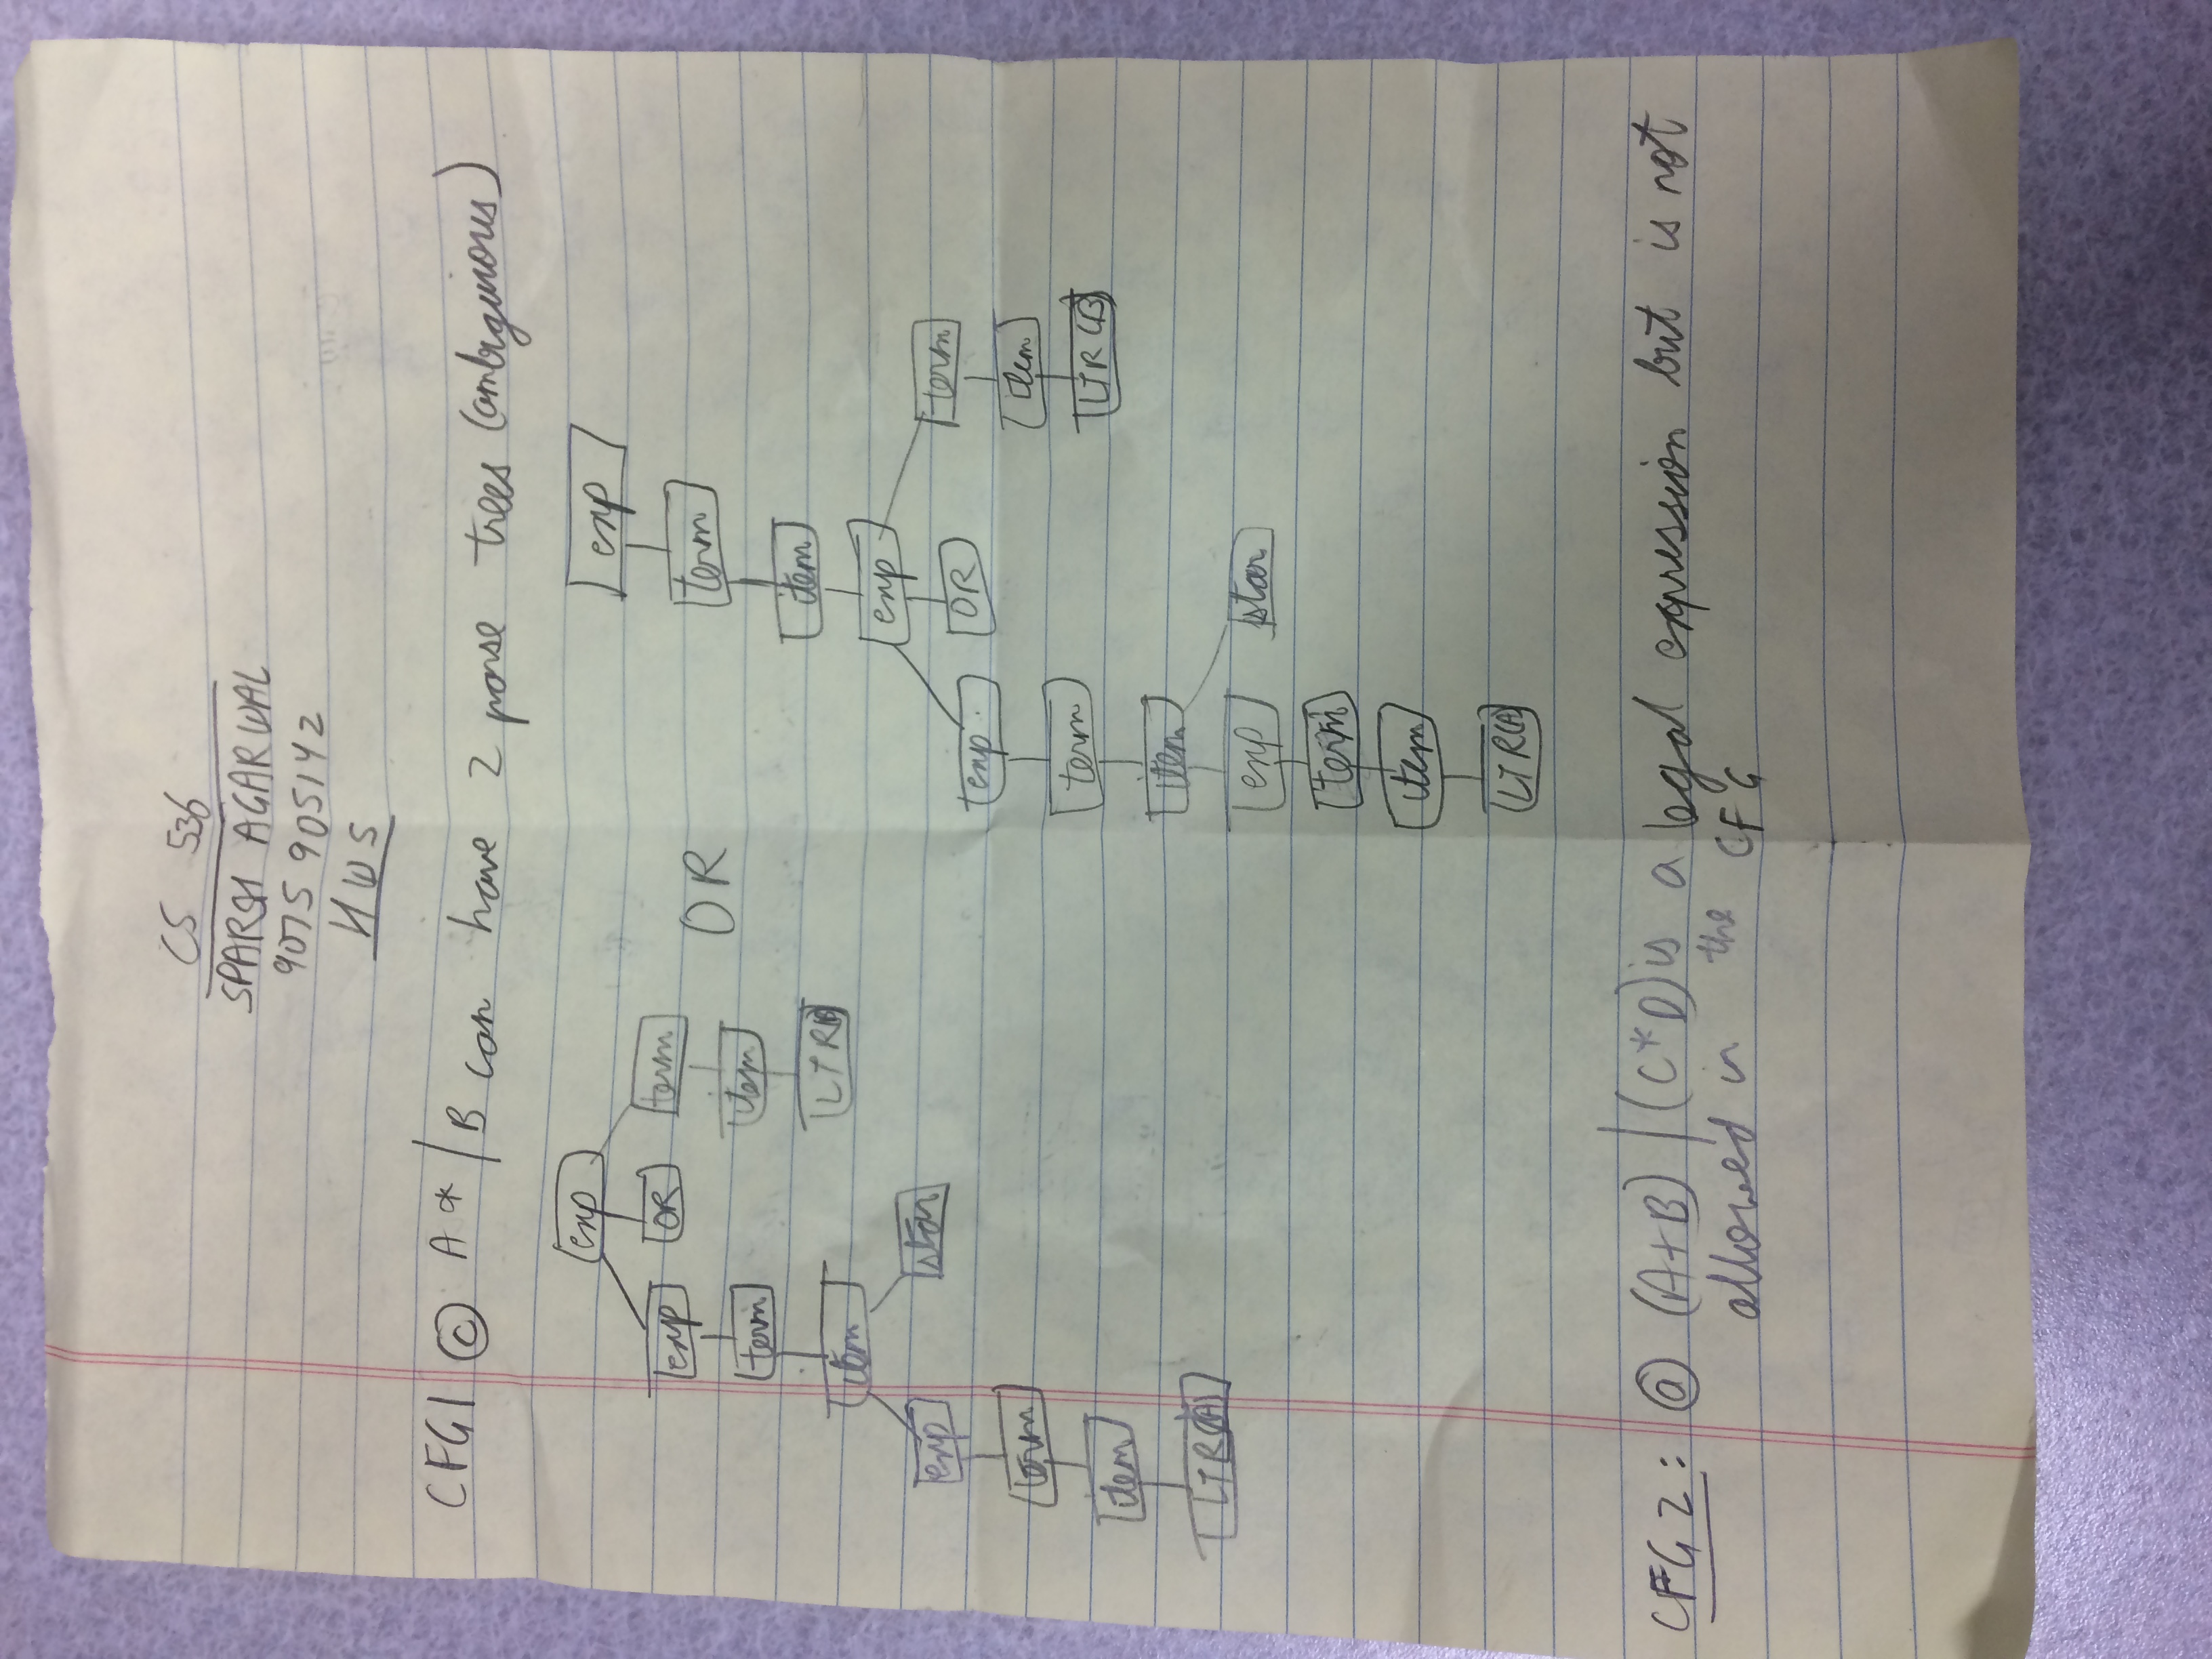 CS 536
SPARSH AGARWAL
9075905142
HW5
CFG1 (c) A*/B can have 2 parse trees (ambiguious)
exp
exp OR term
term item
item LTR(B)
exp star
term
item
LTR(A)
OR
exp
term
item
exp
exp OR term
term item
item LTR(B)
exp star
term
item
LTR(A)
CFG2: (a) (A+B) | (C*D) is a legal expression but is not
allowed in the CFG